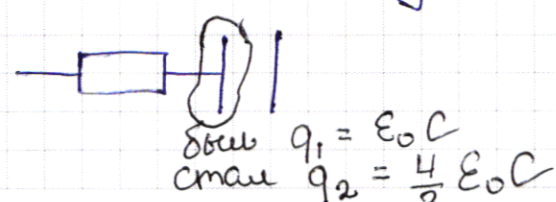 был q₁ = ε₀C
стал q₂ = 4/ ε₀C